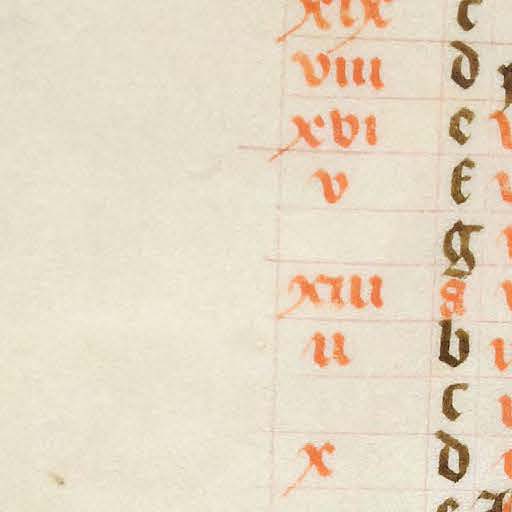 xix c
viii d
xvi e
v f
g
xiii a
ii b
c
x d
e